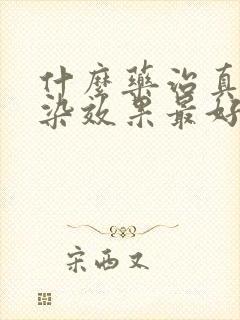 什麼藥治真
染效果最好
宋西又